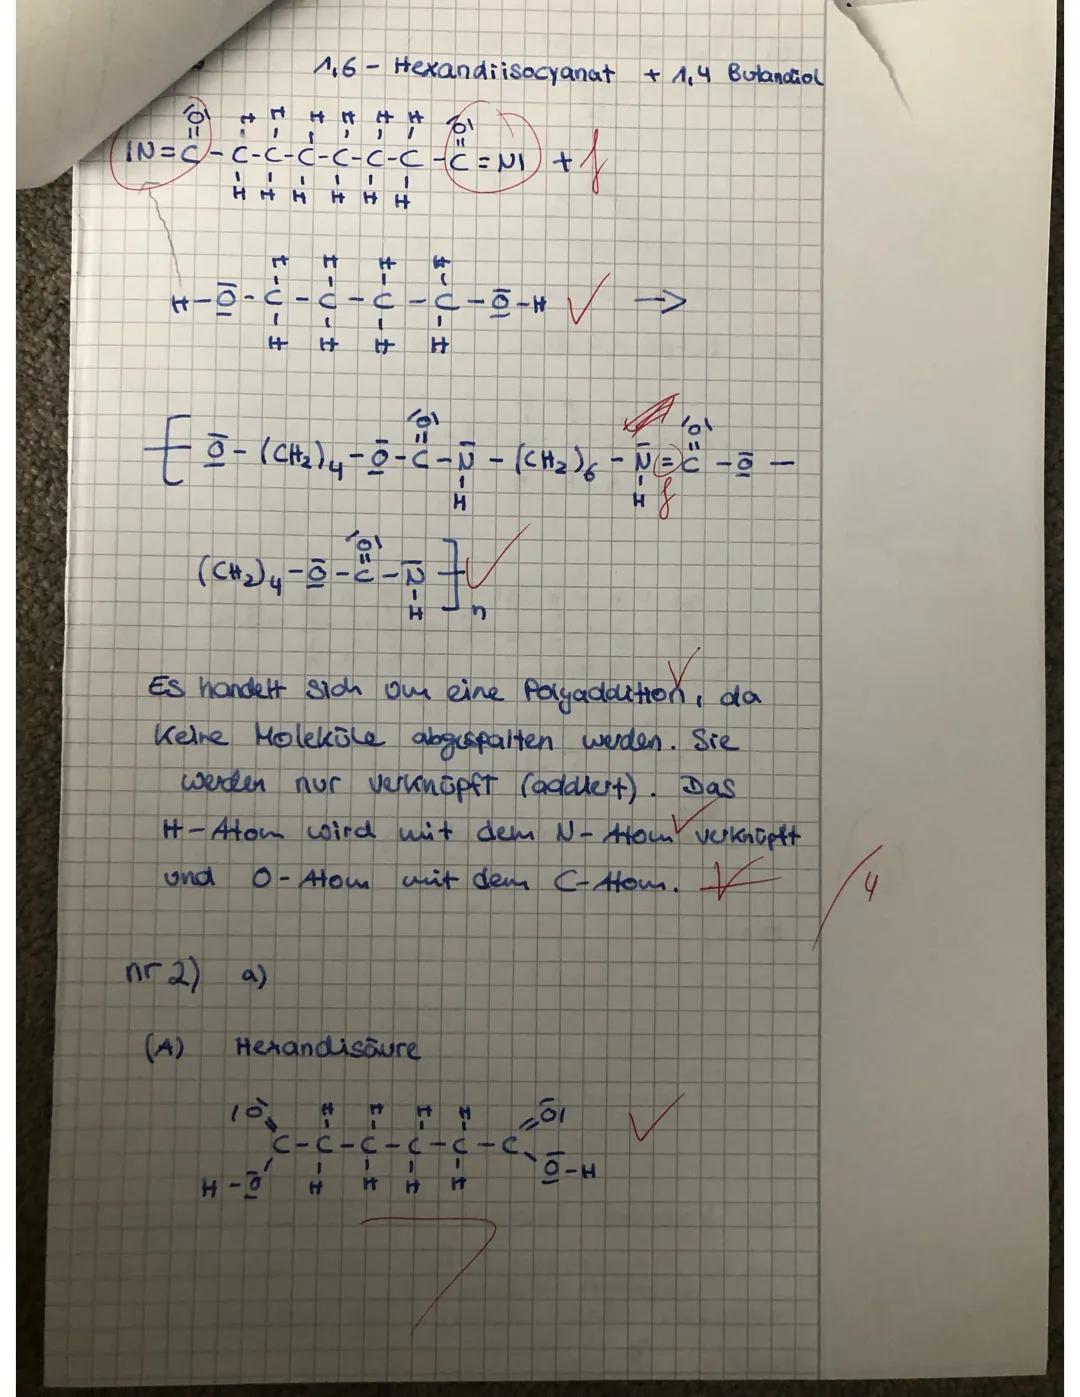 1,6 - Hexandiisocyanat + 1,4 Butandiol
O O
H H H H H H
|N=C-C-C-C-C-C-C-C=N| + f
H H H H H H
H H H H
H-O-C-C-C-C-O-H ✓ →
H H H H
O O
[ O-(CH₂)₄-O-C-N-(CH₂)₆-N=C-O-
H H f
O
(CH₂)₄-O-C-N ]n ✓
H
Es handelt sich um eine Polyaddition, da
keine Moleküle abgespalten werden. Sie
werden nur verknüpft (addiert). Das
H-Atom wird mit dem N-Atom verknüpft
und O-Atom mit dem C-Atom.
/4
nr 2) a)
(A) Hexandisäure
O H H H H O
C-C-C-C-C-C ✓
H-O H H H H O-H